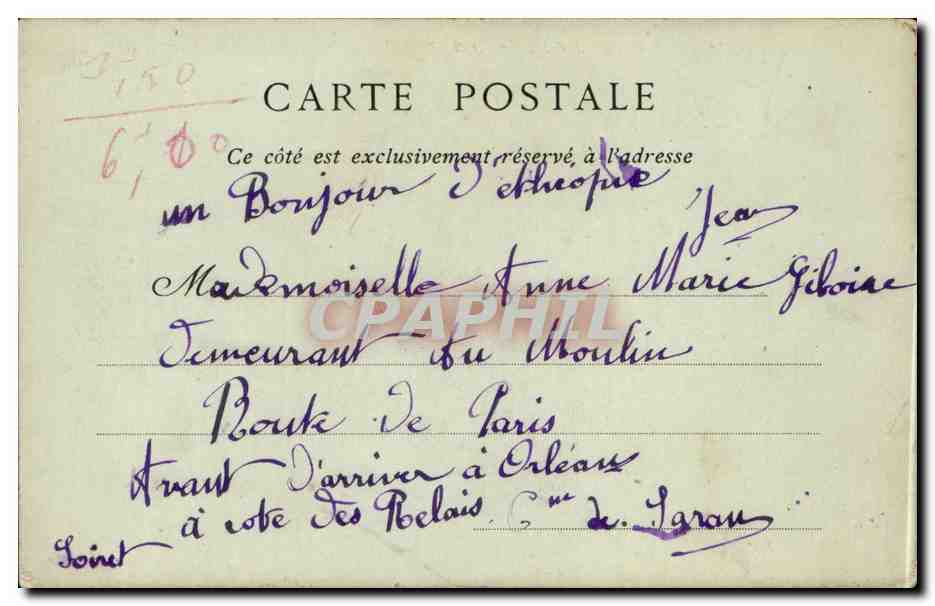 3,50
6,00
CARTE POSTALE
Ce côté est exclusivement réservé à l'adresse
un Bonjour d'ethiopie
Jean
Mademoiselle Anne Marie Giboine
CPAPHIL
Demeurant Au Moulin
Route de Paris
Avant d'arriver à Orléans
à cote des Relais Cne de Saran
Loiret